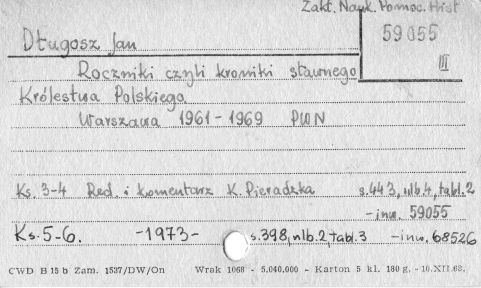 Zakł. Nauk. Pomoc. Hist
Długosz Jan
59055
III
Roczniki czyli kroniki sławnego
Królestwa Polskiego
Warszawa 1961-1969 PWN
Ks. 3-4 Red. i komentarz K. Pieradzka s. 443, nlb. 4, tabl. 2
- inw. 59055
Ks. 5-6. -1973- s. 398, nlb. 2, tabl. 3 - inw. 68526
CWD B 15 b Zam. 1537/DW/On Wrak 1068 - 5.040.000 - Karton 5 kl. 180 g. - 10.XII.68.